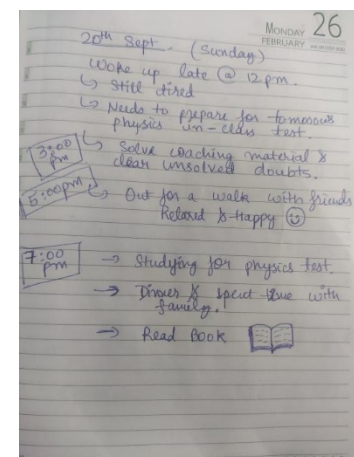 MONDAY 26
FEBRUARY
20th Sept. (Sunday)
Woke up late @ 12pm.
↳ Still tired
↳ Needs to prepare for tomorrows
physics un-class test.
3:00 pm ↳ Solve coaching material &
clear unsolved doubts.
5:00pm ↳ Out for a walk with friends
Relaxed & Happy ☺
7:00 pm → Studying for physics test.
→ Dinner & spent time with
family.
→ Read Book